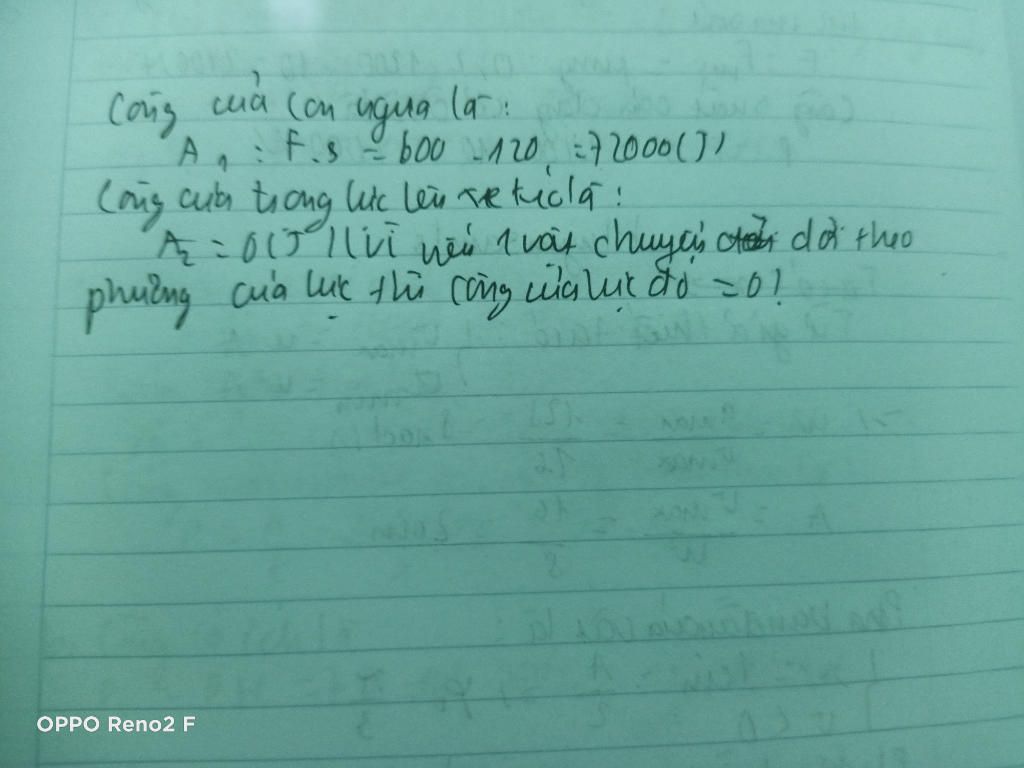 Công của con ngựa là:
A₁ = F.s = 600 .120 = 72000(J)
Công của trọng lực lên xe là:
A₂ = 0(J) (vì nếu 1 vật chuyển dời theo
phương của lực thì công của lực đó = 0)
OPPO Reno2 F